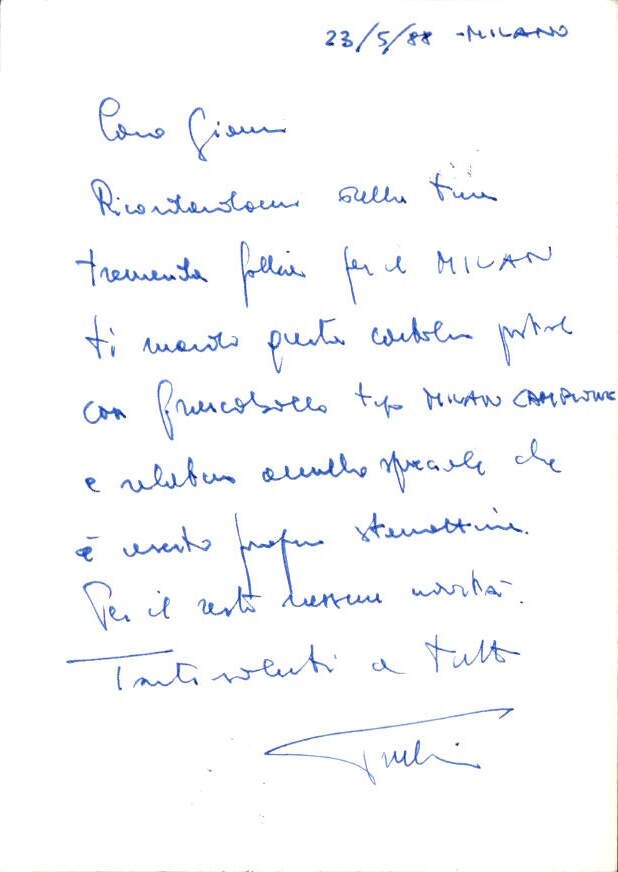 23/5/88 - MILANO
Caro Gianni
Ricordandomi della tua
tremenda follia per il MILAN
ti mando questa cartolina postale
con francobollo tipo MILAN CAMPIONE
e relativo annullo speciale che
è uscito proprio stamattina.
Per il resto nessuna novità.
Tanti saluti a tutti